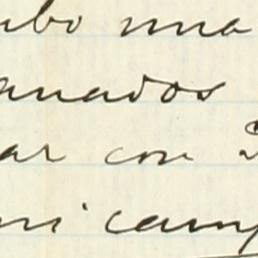 ubo una
anados
ar con
mi camp